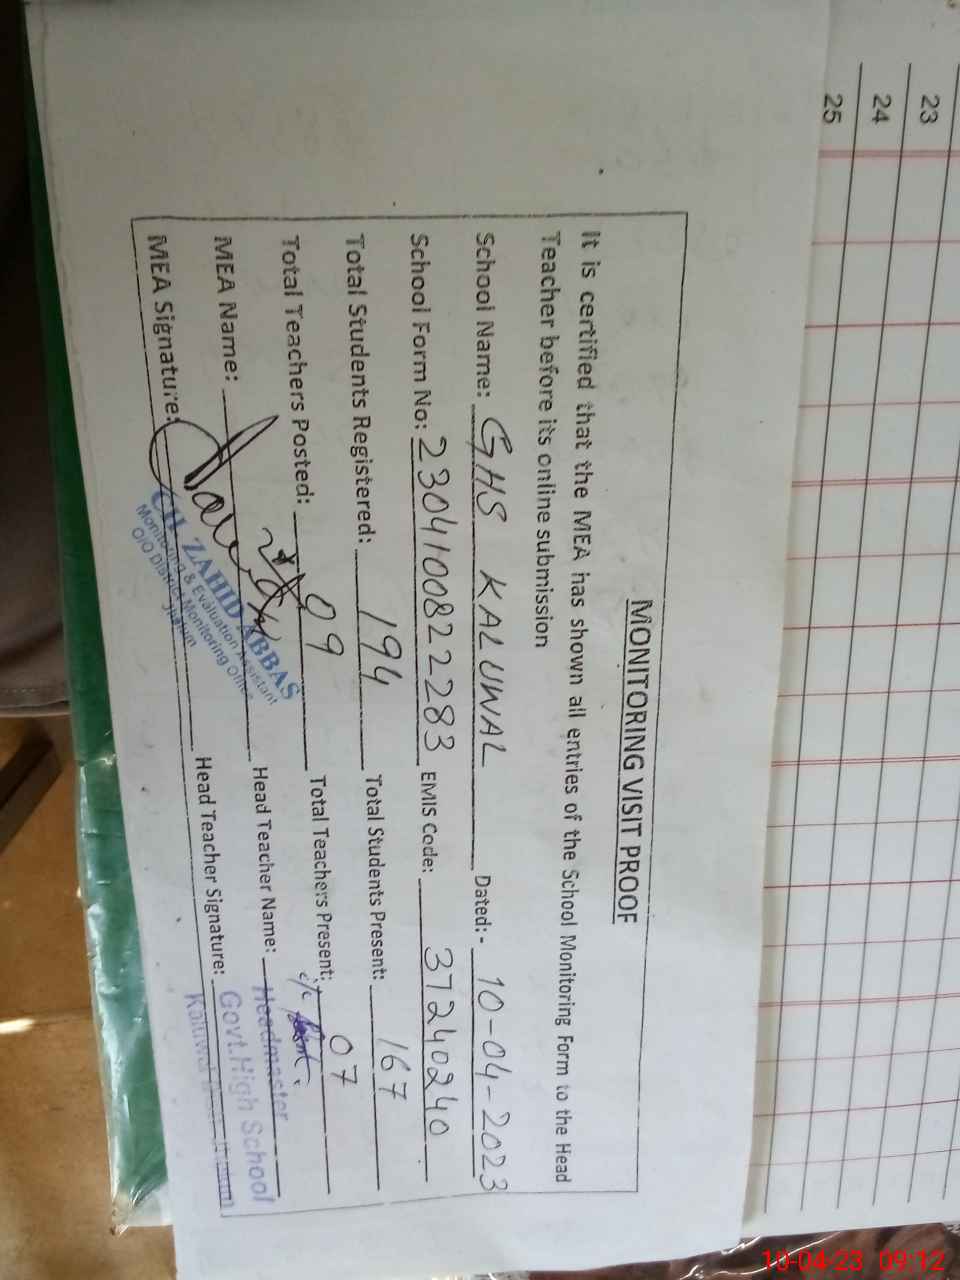 23
24
25
MONITORING VISIT PROOF
It is certified that the MEA has shown all entries of the School Monitoring Form to the Head
Teacher before its online submission
School Name: GHS KALUWAL Dated:- 10-04-2023
School Form No: 23041008222283 EMIS Code: 37240240
Total Students Registered: 194 Total Students Present: 167
Total Teachers Posted: 09 Total Teachers Present: 07
MEA Name: Head Teacher Name:
MEA Signature: Head Teacher Signature:
CH. ZAHID ABBAS
Monitoring & Evaluation Assistant
O/O District Monitoring Officer
Jhelum
Headmaster
Govt. High School
Kaluwal Jhelum
10-04-23 09:12